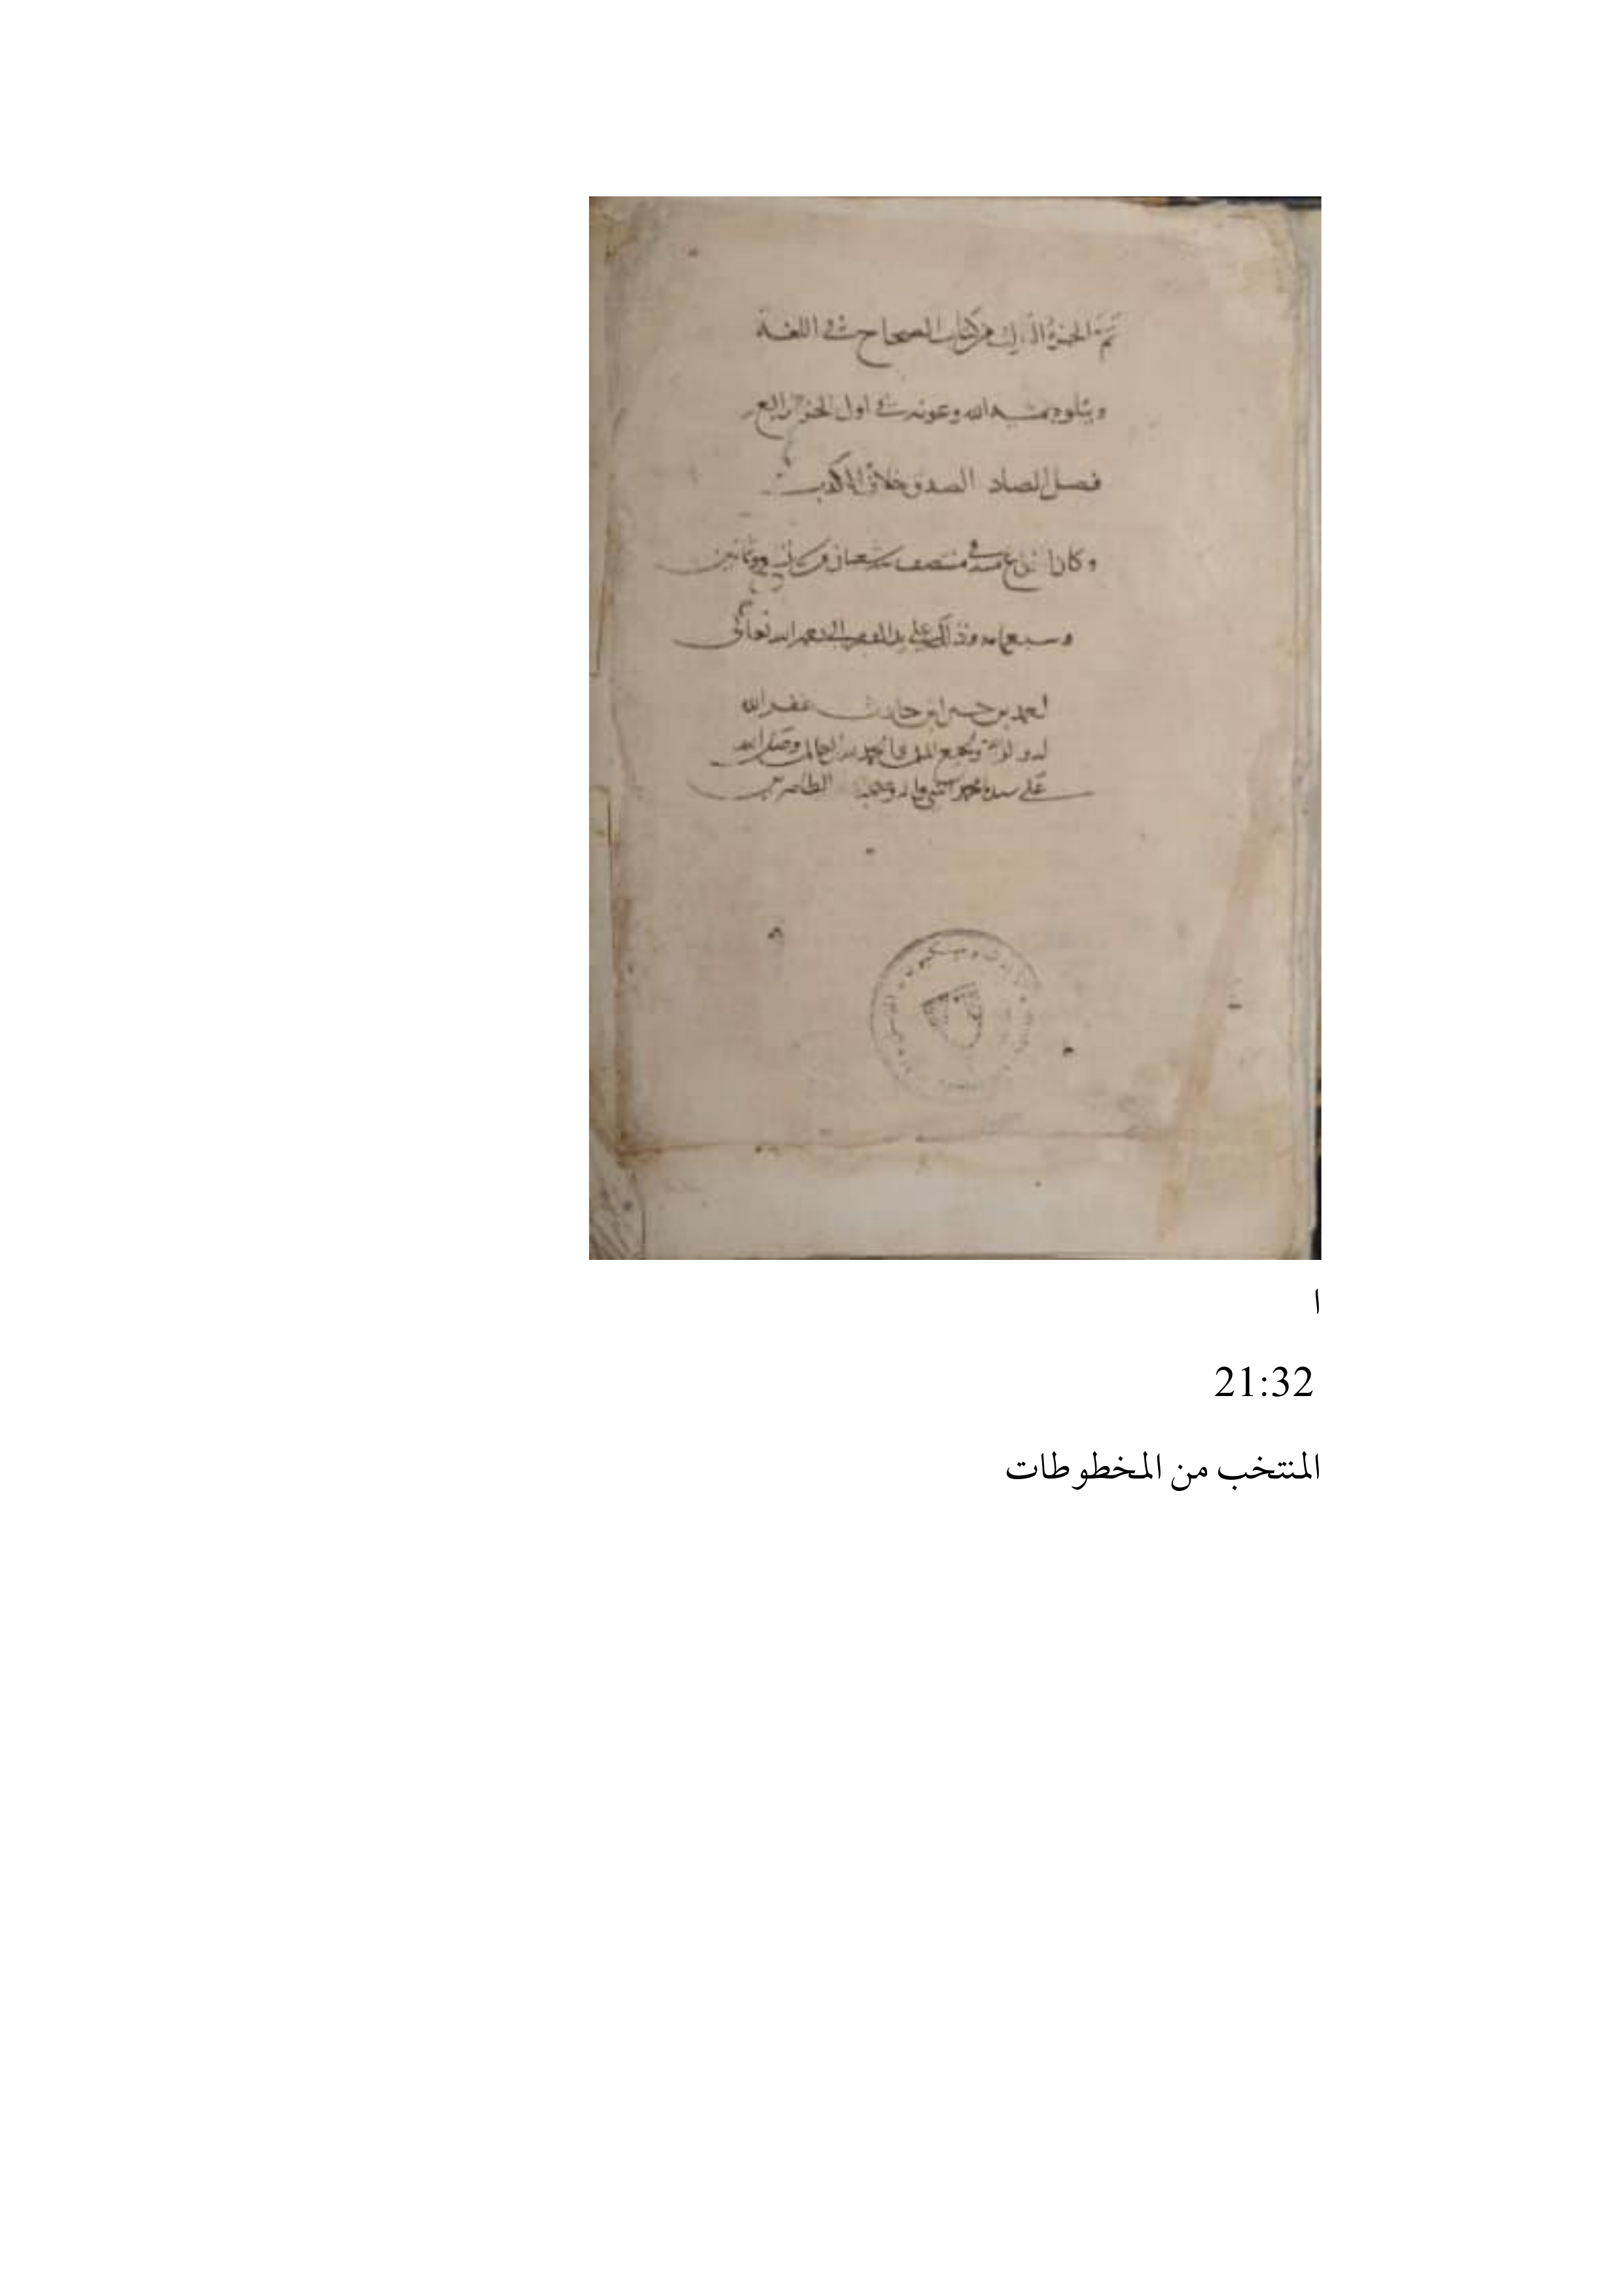 تم الجزء الثالث من كتاب الصحاح في اللغة
ويتلوه بمشية الله وعونه في اول الجزء الرابع
فصل الصاد الصدق خلاف الكذب
وكان الفراغ منه في منتصف شعبان من سنة وثمانين
وسبعماية وذلك على يد الفقير الى الله تعالى
بن حسن ابن غفر الله
له ولوالديه ولجميع المسلمين والحمد لله رب العالمين وصلى الله
على سيدنا محمد النبي واله وصحبه الطاهرين
ا
21:32
المنتخب من المخطوطات